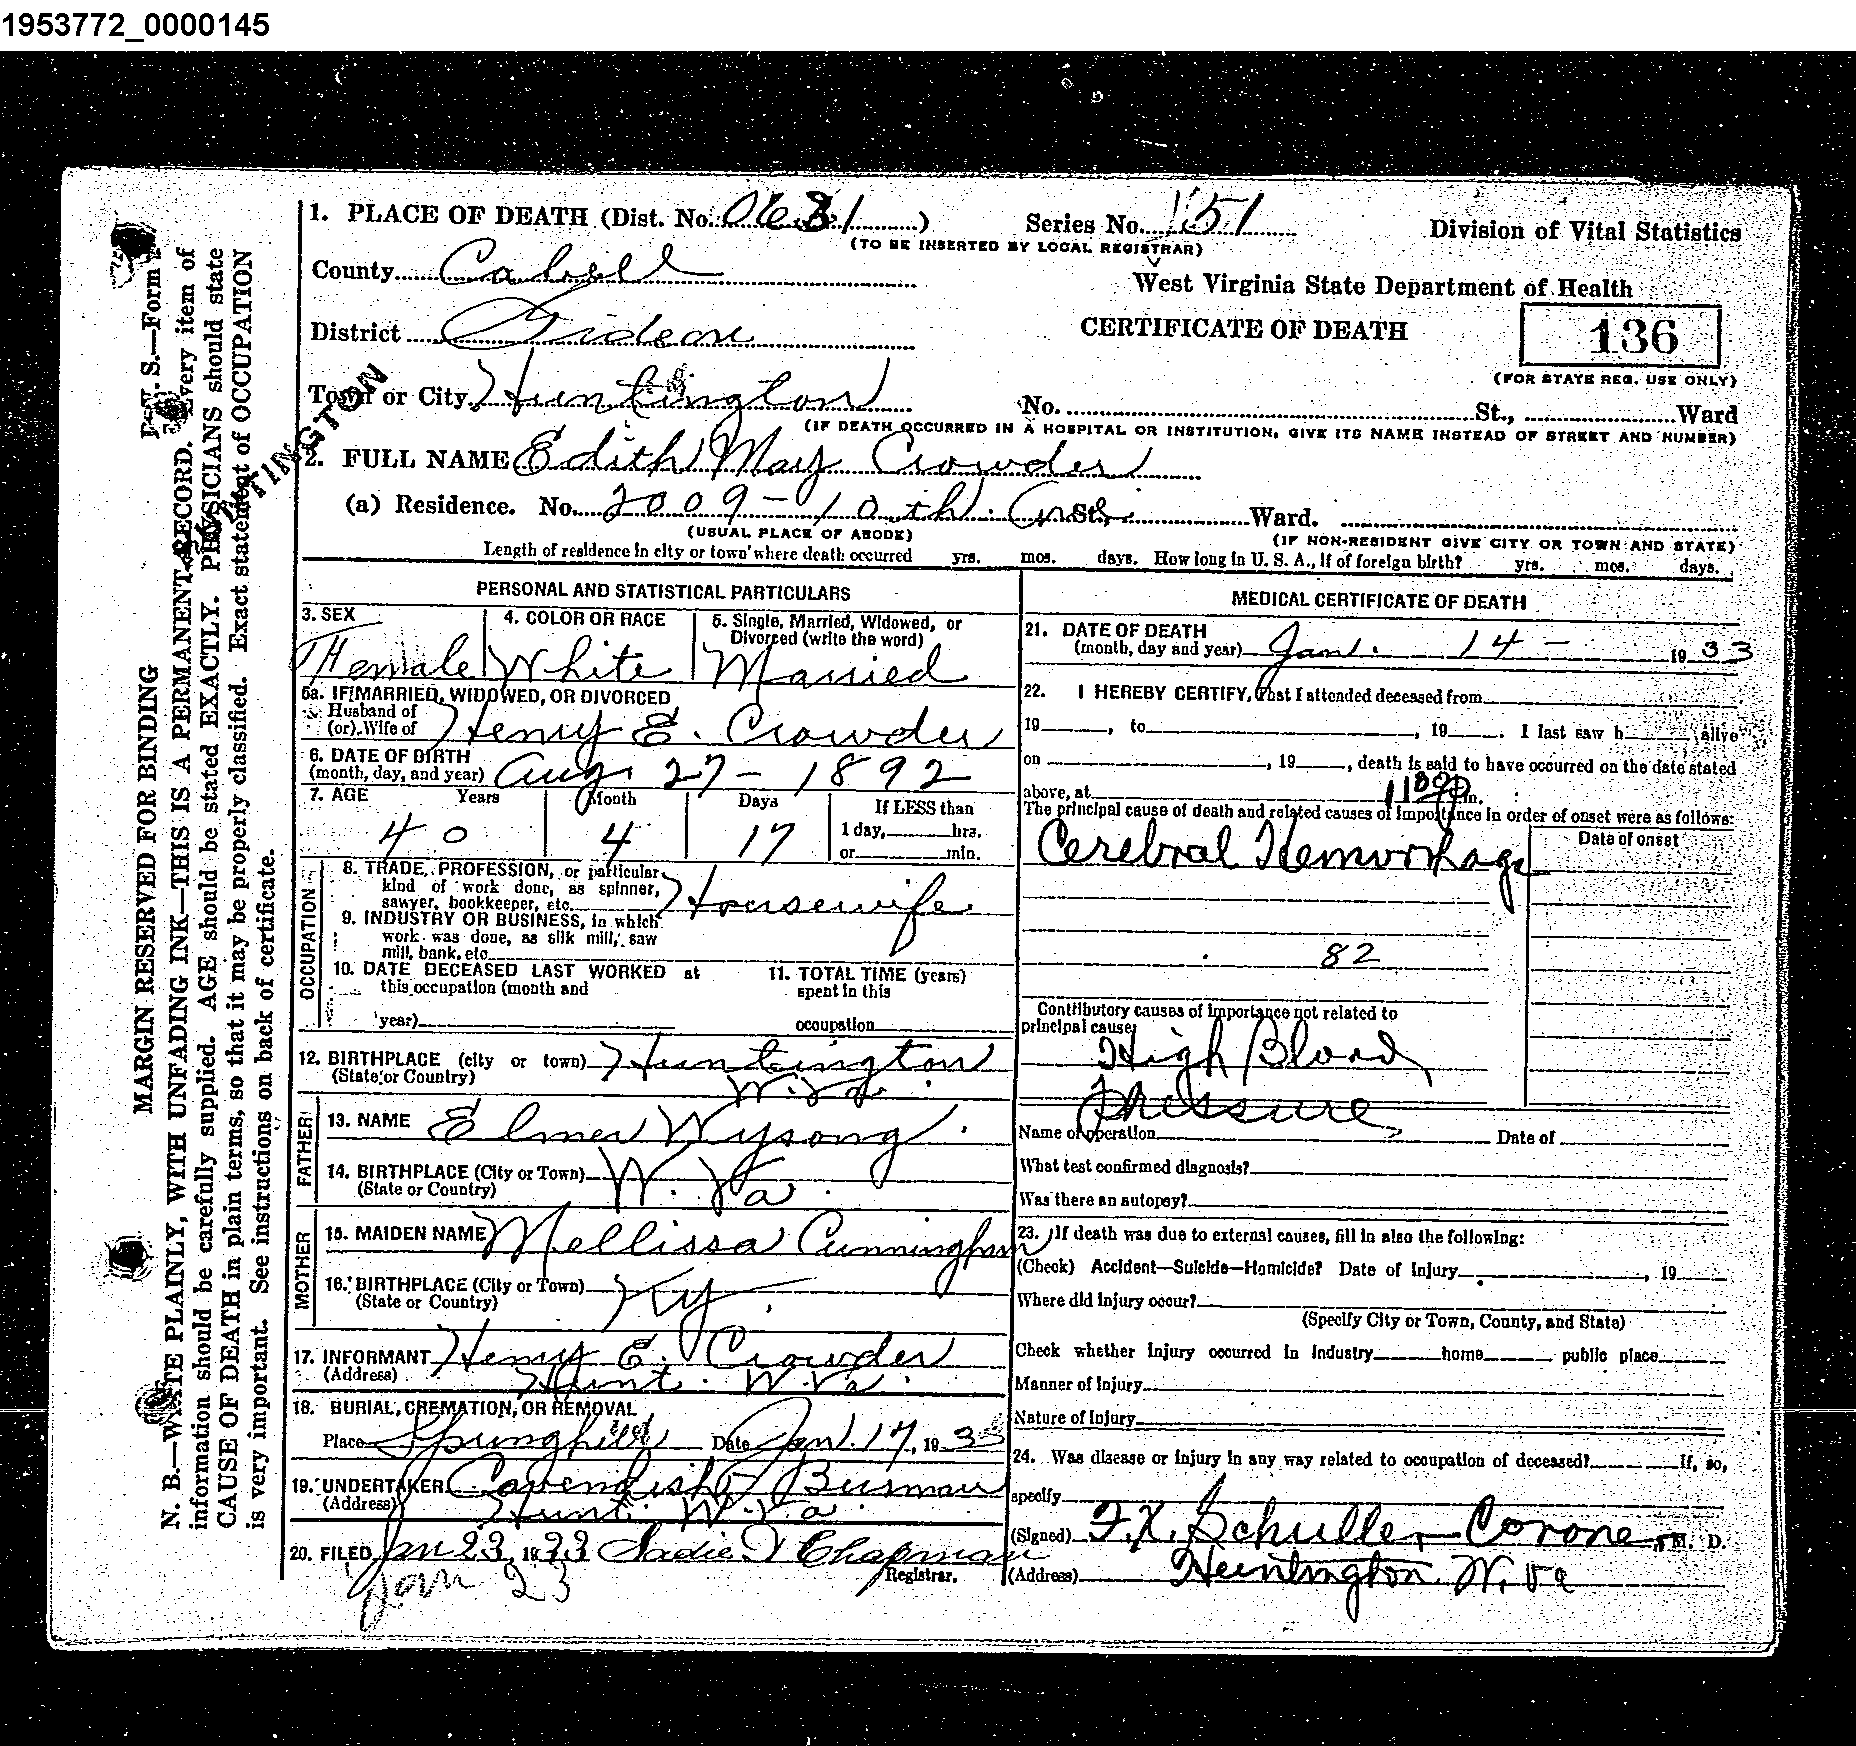 1953772_0000145
1. PLACE OF DEATH (Dist. No. 0631) Series No. 151 Division of Vital Statistics
(TO BE INSERTED BY LOCAL REGISTRAR)
County Cabell
West Virginia State Department of Health
District Gideon CERTIFICATE OF DEATH 136
(FOR STATE REG. USE ONLY)
Town or City Huntington No. St., Ward
(IF DEATH OCCURRED IN A HOSPITAL OR INSTITUTION, GIVE ITS NAME INSTEAD OF STREET AND NUMBER)
2. FULL NAME Edith May Crowder
(a) Residence. No. 2009 - 10th. Ave St., Ward.
(USUAL PLACE OF ABODE) (IF NON-RESIDENT GIVE CITY OR TOWN AND STATE)
Length of residence in city or town where death occurred yrs. mos. days. How long in U. S. A., if of foreign birth? yrs. mos. days.
PERSONAL AND STATISTICAL PARTICULARS
3. SEX 4. COLOR OR RACE 5. Single, Married, Widowed, or
Divorced (write the word)
Female White Married
5a. IF MARRIED, WIDOWED, OR DIVORCED
Husband of
(or) Wife of Henry E. Crowder
6. DATE OF BIRTH
(month, day, and year) Aug. 27 - 1892
7. AGE Years Month Days If LESS than
40 4 17 1 day, hrs.
or min.
OCCUPATION
8. TRADE, PROFESSION, or particular
kind of work done, as spinner,
sawyer, bookkeeper, etc. Housewife
9. INDUSTRY OR BUSINESS, in which
work was done, as silk mill, saw
mill, bank, etc.
10. DATE DECEASED LAST WORKED at 11. TOTAL TIME (years)
this occupation (month and spent in this
year) occupation
12. BIRTHPLACE (city or town) Huntington
(State or Country) W. Va.
FATHER
13. NAME Elmer Wysong
14. BIRTHPLACE (City or Town) W. Va.
(State or Country)
MOTHER
15. MAIDEN NAME Mellissa Cunningham
16. BIRTHPLACE (City or Town) Ky.
(State or Country)
17. INFORMANT Henry E. Crowder
(Address) Hunt. W. Va.
18. BURIAL, CREMATION, OR REMOVAL
Place Springhill Date Jan. 17, 1933
19. UNDERTAKER Cavendish Busman
(Address) Hunt. W. Va.
20. FILED Jan 23, 1933 Sadie Chapman
Registrar.
Jan 23
MEDICAL CERTIFICATE OF DEATH
21. DATE OF DEATH
(month, day and year) Jan. 14 - 1933
22. I HEREBY CERTIFY, that I attended deceased from
19 , to , 19 . I last saw h alive
on , 19 , death is said to have occurred on the date stated
above, at m.
The principal cause of death and related causes of importance in order of onset were as follows:
Date of onset
Cerebral Hemorrhage
82
Contributory causes of importance not related to
principal cause:
High Blood
Pressure
Name of operation Date of
What test confirmed diagnosis?
Was there an autopsy?
23. If death was due to external causes, fill in also the following:
(Check) Accident—Suicide—Homicide? Date of injury , 19
Where did injury occur?
(Specify City or Town, County, and State)
Check whether injury occurred in industry home public place
Manner of Injury
Nature of Injury
24. Was disease or injury in any way related to occupation of deceased? If, so,
specify
(Signed) F. X. Schuller Coroner, M. D.
(Address) Huntington W. Va
MARGIN RESERVED FOR BINDING
V. S.—Form
N. B.—WRITE PLAINLY, WITH UNFADING INK—THIS IS A PERMANENT RECORD. Every item of
information should be carefully supplied. AGE should be stated EXACTLY. PHYSICIANS should state
CAUSE OF DEATH in plain terms, so that it may be properly classified. Exact statement of OCCUPATION
is very important. See instructions on back of certificate.